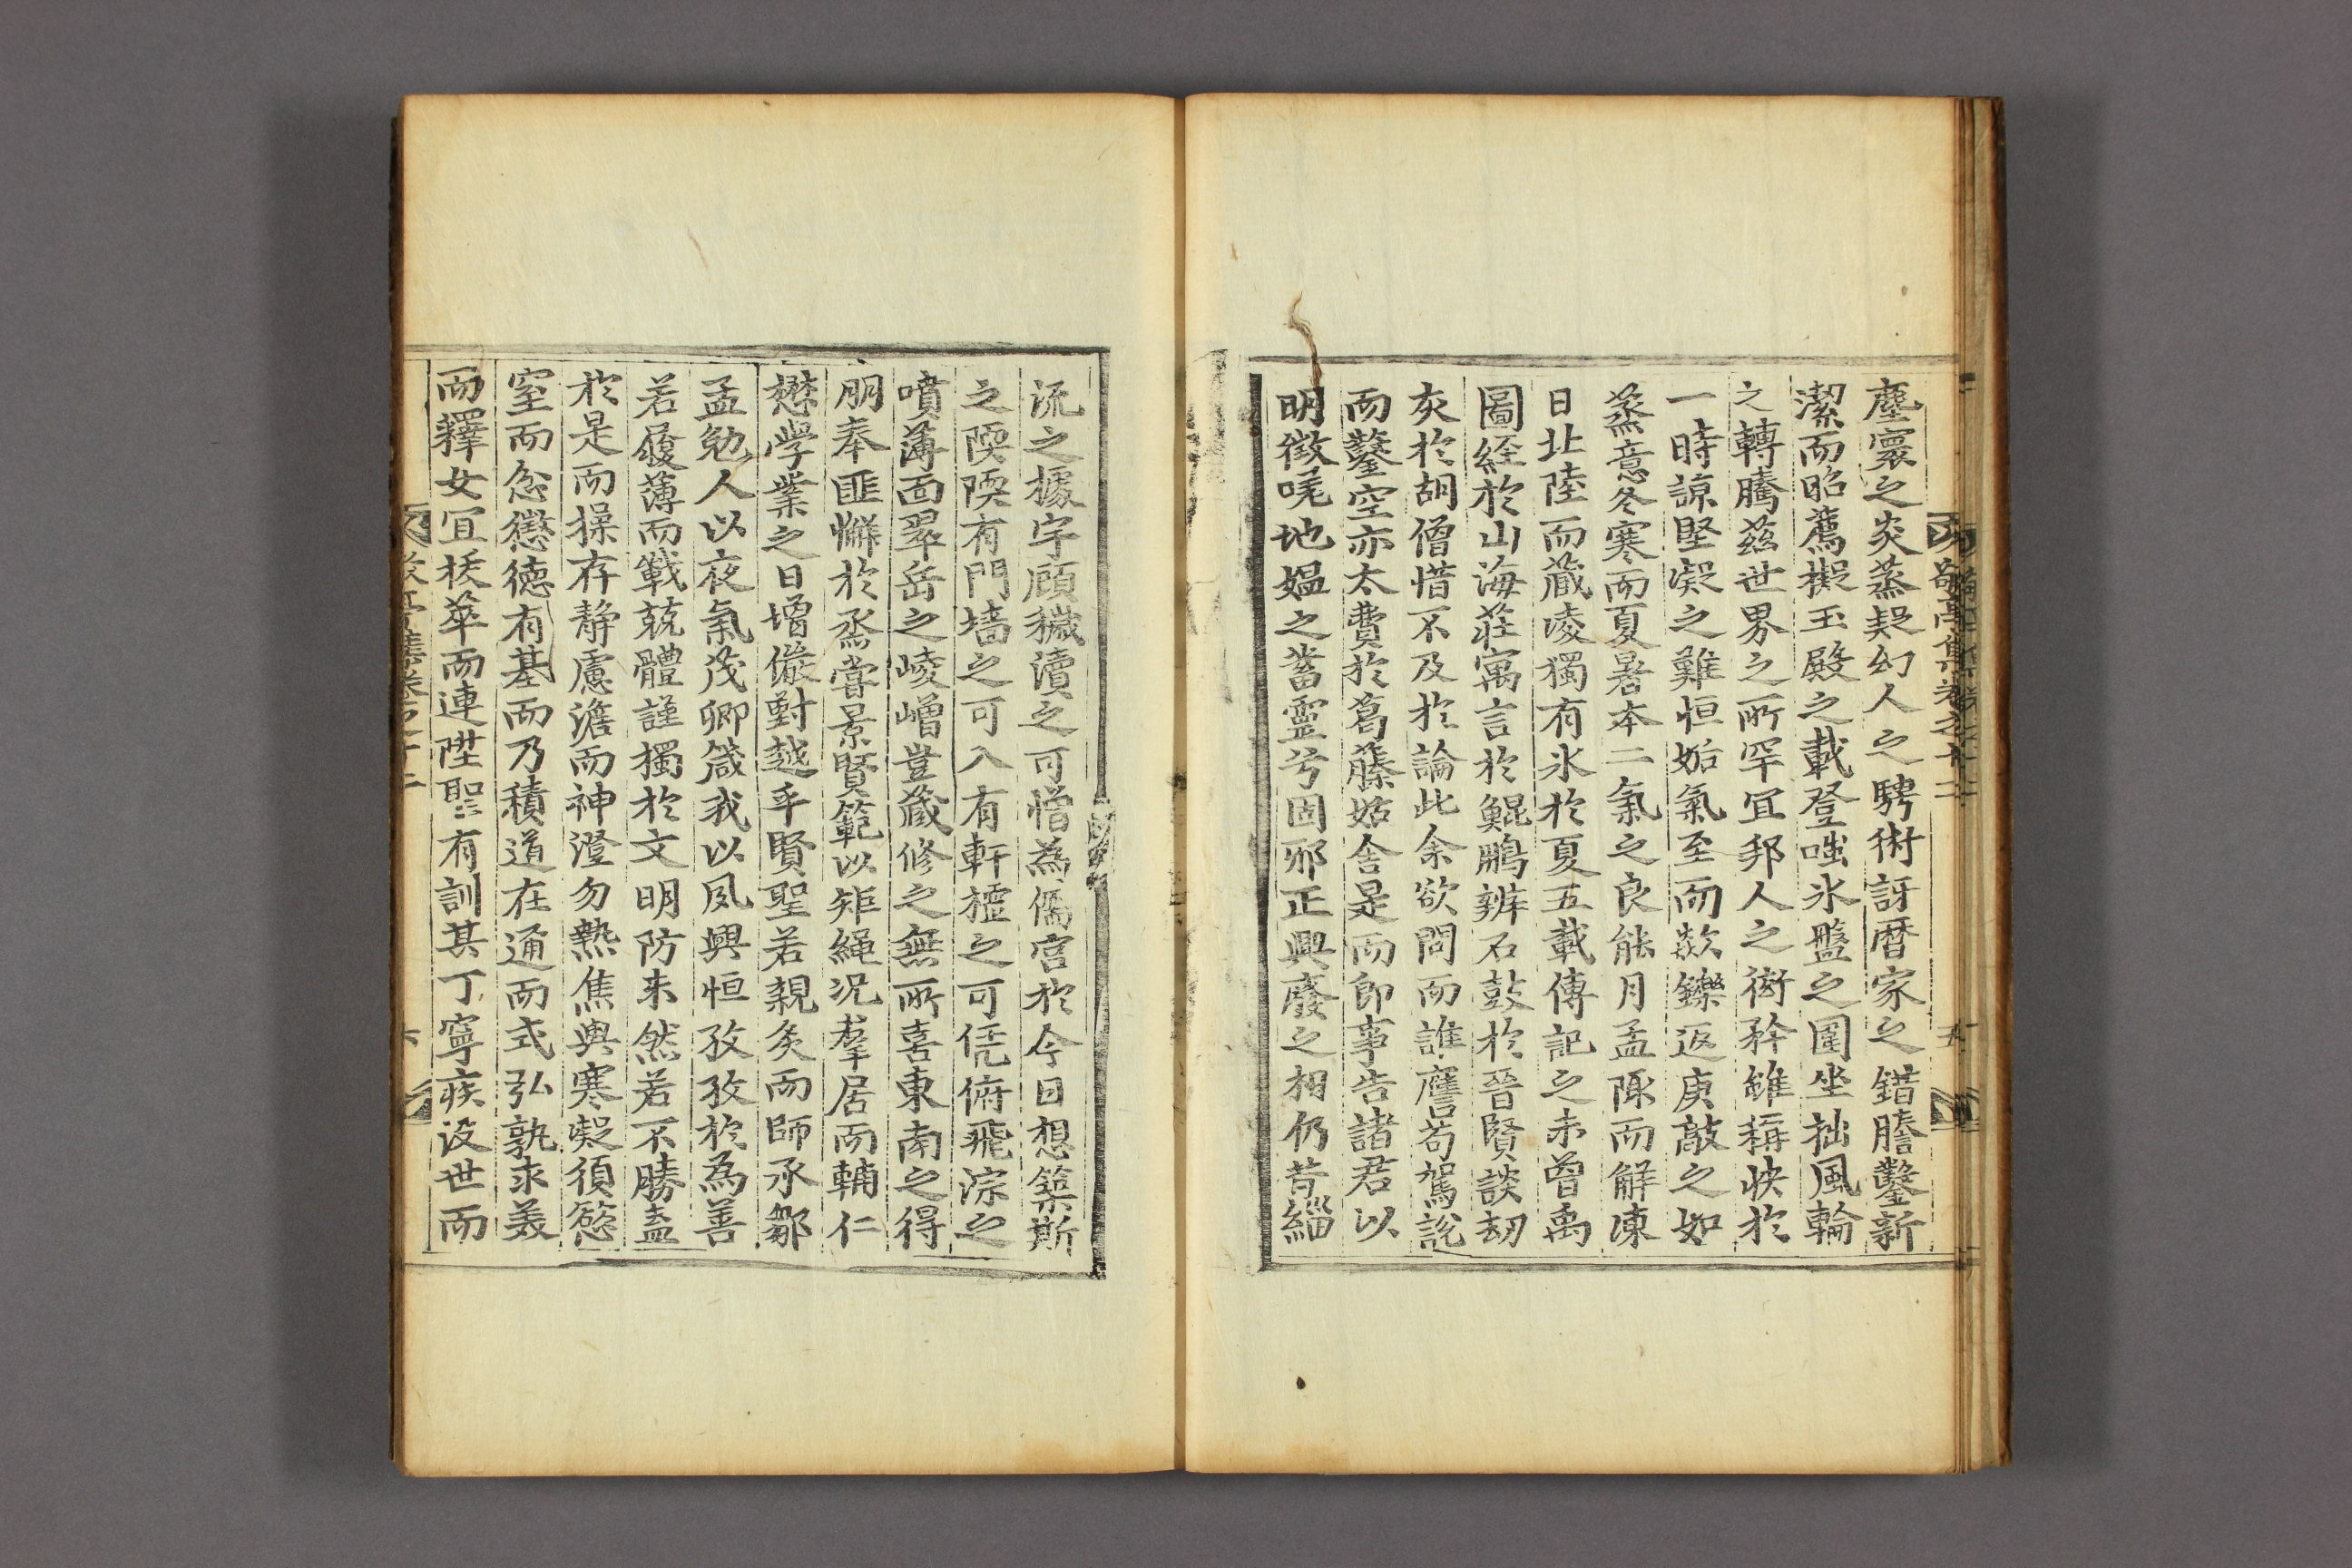 塵寰之炎蒸疑幻人之騁術訝曆家之錯謄鑿新
潔而昭薦擬玉殿之載登嗤氷盤之圍坐拙風輪
之轉騰茲世界之所罕宜邦人之衒矜雖稱快於
一時諒堅凝之難恒姤氣至而欻鑠返庚敲之如
蒸意冬寒而夏暑本二氣之良能月孟陬而解凍
日北陸而藏凌獨有氷於夏五載傳記之未曾禹
圖經於山海莊寓言於鯤鵬辨石鼓於晉賢談刧
灰於胡僧惜不及於論此余欲問而誰譍苟駕說
而鑿空亦太費於葛藤姑舍是而卽事告諸君以
明徵嘵地媼之蓄靈兮固邪正興廢之相仍昔緇
敬亭集卷之十二
五
流之據宇顧穢瀆之可憎為儒宮於今日想築斯
之陾陾有門墻之可入有軒櫺之可凭俯飛淙之
噴薄面翠岳之崚嶒豈藏修之無所喜東南之得
朋奉匪懈於烝嘗景賢範以矩繩况羣居而輔仁
懋學業之日增儼對越乎賢聖若親炙而師承鄒
孟勉人以夜氣茂卿箴我以夙興恒孜孜於為善
若履薄而戰兢體謹獨於文明防未然若不勝盍
於是而操存靜慮澹而神澄勿熱焦與寒凝須慾
窒而忿懲德有基而乃積道在通而式弘孰求美
而釋女宜拔萃而連陞聖有訓其丁寧疾没世而